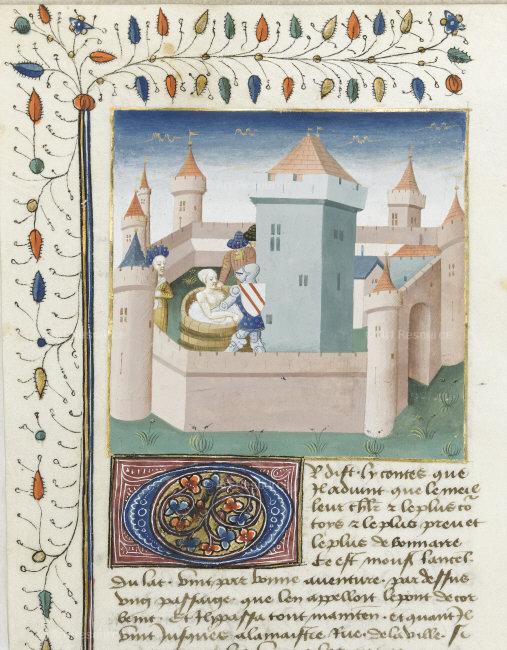 R dist ly contes que
Il aduint que le meil
leur chlr z le plus co
toys z le plus preu et
le plus de bonnaire
Ce est mons lancel
du lac vint par bonne auenture par dessus
ung passaige que len appelloit le pont de cor
benic et Il passa tout mainten et quant Il
vint Jusques a la maistre Rue de la ville si